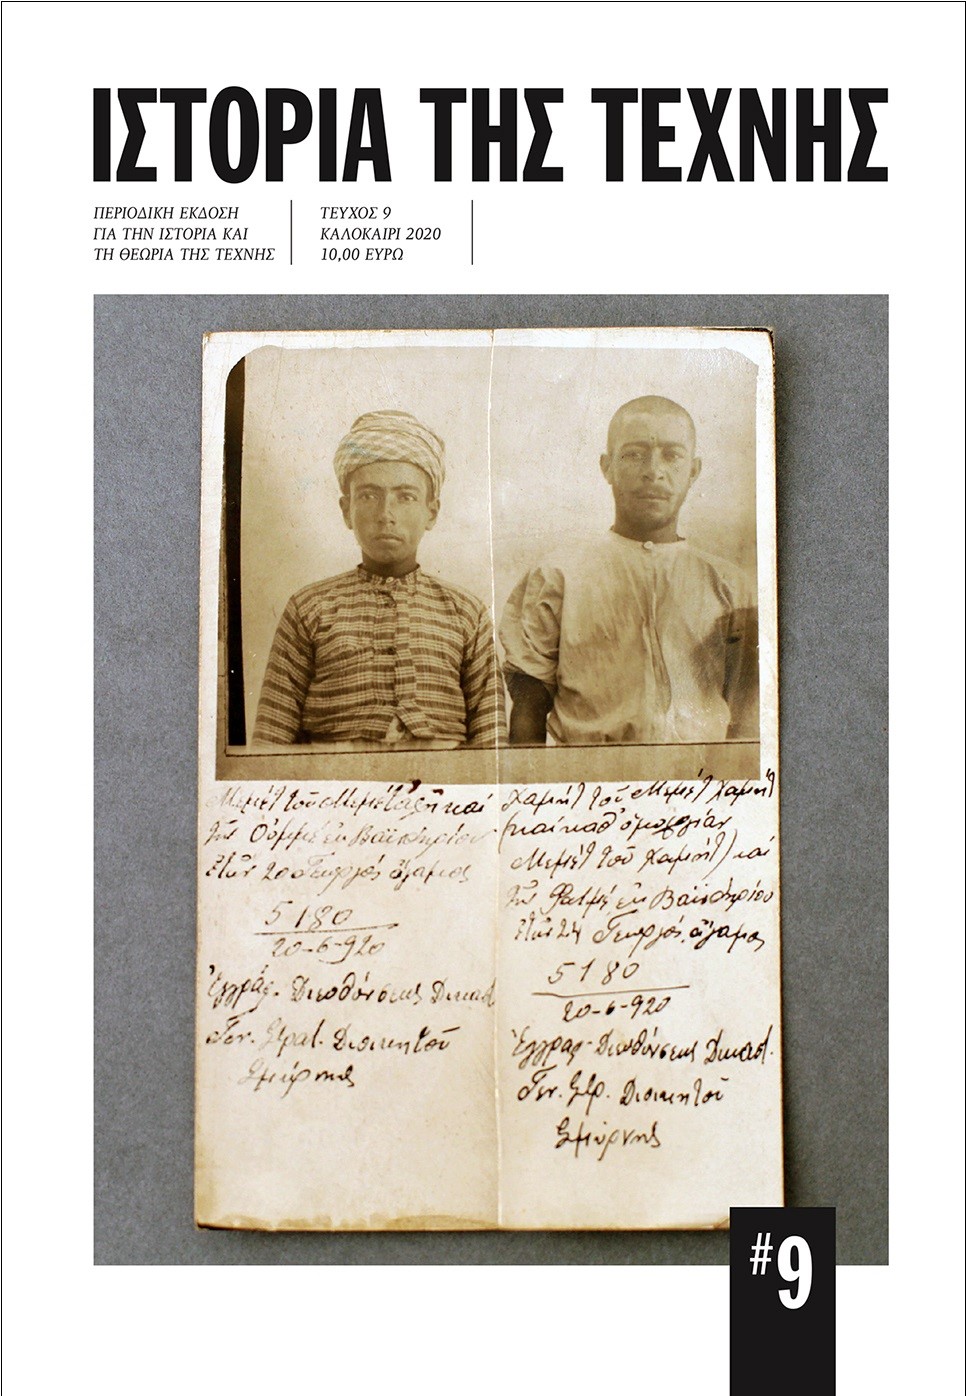 ΙΣΤΟΡΙΑ ΤΗΣ ΤΕΧΝΗΣ
ΠΕΡΙΟΔΙΚΗ ΕΚΔΟΣΗ
ΓΙΑ ΤΗΝ ΙΣΤΟΡΙΑ ΚΑΙ
ΤΗ ΘΕΩΡΙΑ ΤΗΣ ΤΕΧΝΗΣ
ΤΕΥΧΟΣ 9
ΚΑΛΟΚΑΙΡΙ 2020
10,00 ΕΥΡΩ
Μεμέτ τοῦ καί
τῆς ἐκ Βαϊνδηρίου
ἐτῶν 20 Γεωργός ἄγαμος
5180
20-6-920
Ἐγγραφ. Διευθύνσεως Δικασ.
Γεν. Στρατ. Διοικητοῦ
Σμύρνης
Χαμήτ τοῦ Μεμέτ Χαμήτ
(καί καθ' ὁμολογίαν
Μεμέτ τοῦ Χαμήτ) καί
τῆς Φατμέ ἐκ Βαϊνδηρίου
ἐτῶν 24 Γεωργός, ἄγαμος
5180
20-6-920
Ἐγγραφ. Διευθύνσεως Δικασ.
Γεν. Στρ. Διοικητοῦ
Σμύρνης
#9